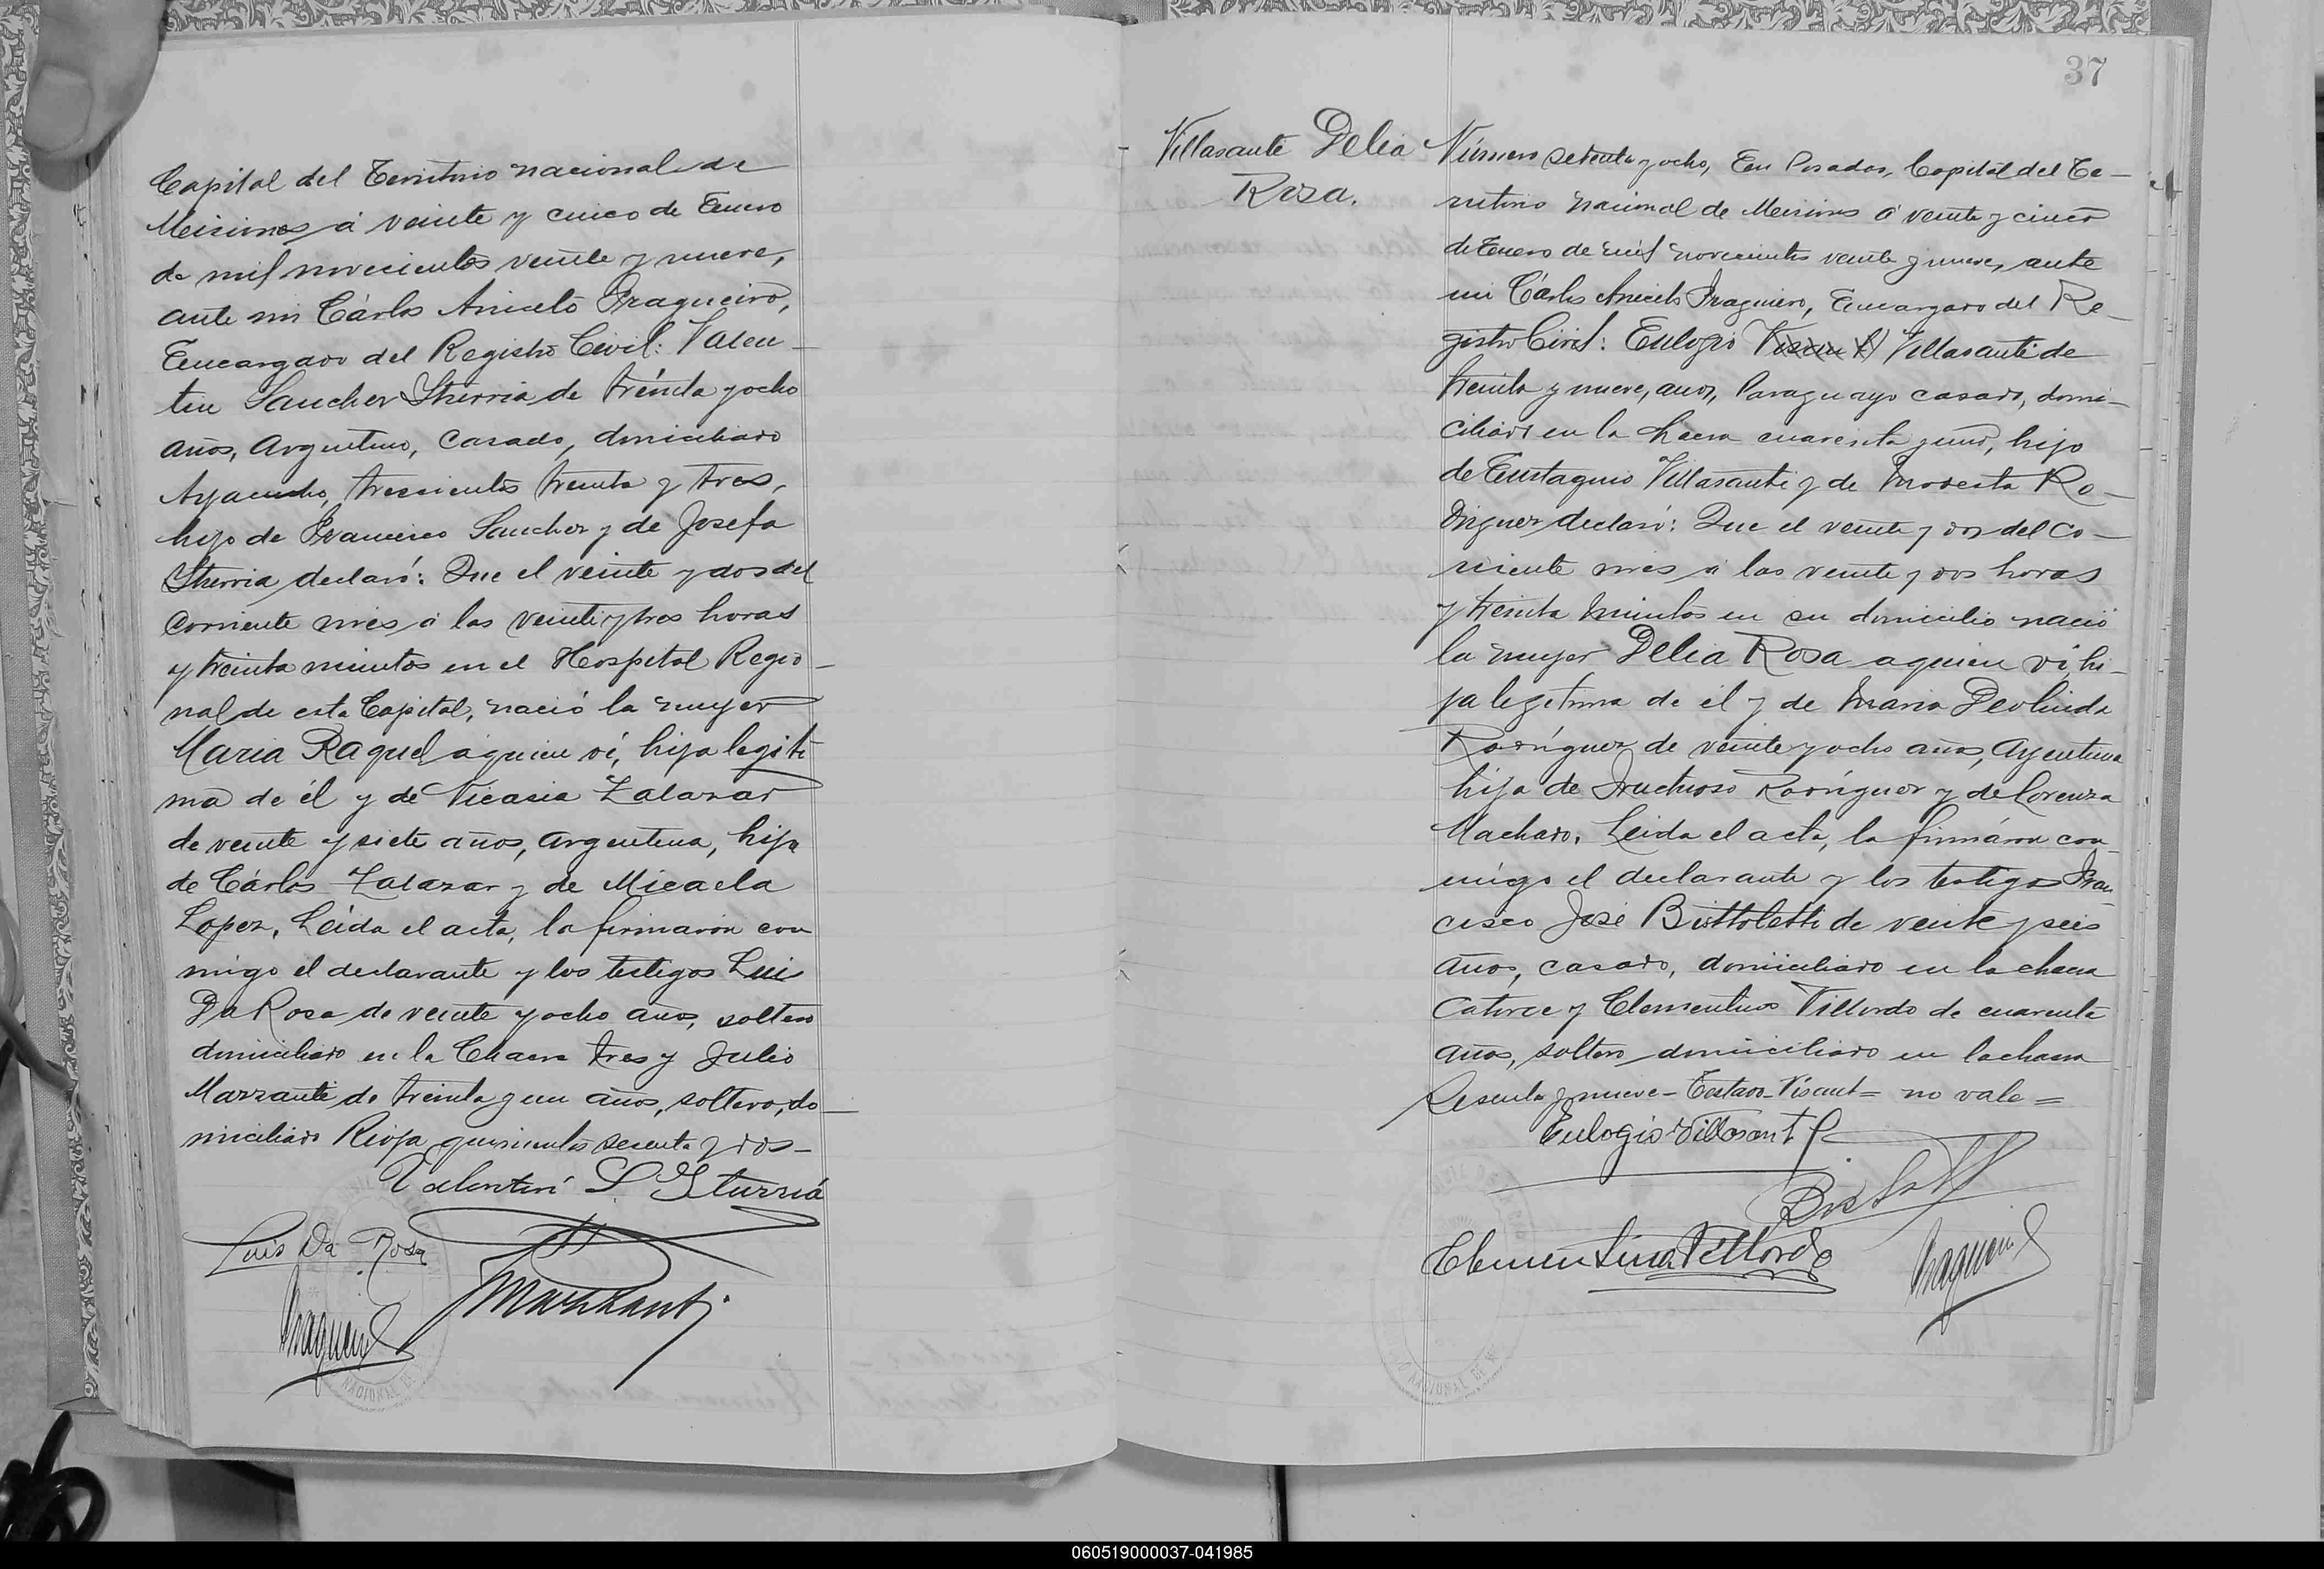 Capital del Territorio nacional de
Misiones á veinte y cinco de Enero
de mil novecientos veinte y nueve,
ante mi Cárlos Aniceto Fragueiro,
Encargado del Registro Civil: Valen-
tin Sanchez Iturria de treinta y ocho
años, Argentino, Casado, domiciliado
Ayacucho, trescientos treinta y tres,
hijo de Francisco Sanchez y de Josefa
Iturria declaró: Que el veinte y dos del
corriente mes á las veinte y tres horas
y treinta minutos en el Hospital Regio-
nal de esta Capital, nació la mujer
Maria Raquel á quien ví, hija legiti
ma de él y de Nicasia Zalazar
de veinte y siete años, argentina, hija
de Cárlos Zalazar y de Micaela
Lopez. Leida el acta, la firmaron con
migo el declarante y los testigos Luis
Da Rosa de veinte y ocho años, soltero
domiciliado en la Chacra tres y Julio
Marzante de treinta y un años, soltero, do-
miciliado Rioja quinientos sesenta y dos-
Valentin S. Iturriá
Luis Da Rosa
Marzanti
Fragueiro
37
Villasante Delia
Rosa.
Número setenta y ocho, En Posadas, Capital del Te-
rritorio nacional de Misiones á veinte y cinco
de Enero de mil novecientos veinte y nueve, ante
mi Cárlos Aniceto Fragueiro, Encargado del Re-
gistro Civil: Eulogio Villasante de
treinta y nueve, años, Paraguayo casado, domi-
ciliado en la chacra cuarenta y uno, hijo
de Eustaquio Villasante y de Modesta Ro-
driguez declaró: Que el veinte y dos del co-
rriente mes á las veinte y dos horas
y treinta minutos en su domicilio nació
la mujer Delia Rosa a quien ví, hi-
ja legitima de él y de Maria Deolinda
Rodríguez de veinte y ocho años, Argentina
hija de Fructuoso Rodríguez y de Lorenza
Machado. Leida el acta, la firmáron con-
migo el declarante y los testigos Fran
cisco José Bistoletti de veinte y seis
años, casado, domiciliado en la chacra
Catorce y Clementino Villordo de cuarenta
años, soltero domiciliado en la chacra
Sesenta y nueve- Testado-Visant= no vale=
Eulogio Villasant R
Clementino Villordo
Fragueiro
060519000037-041985